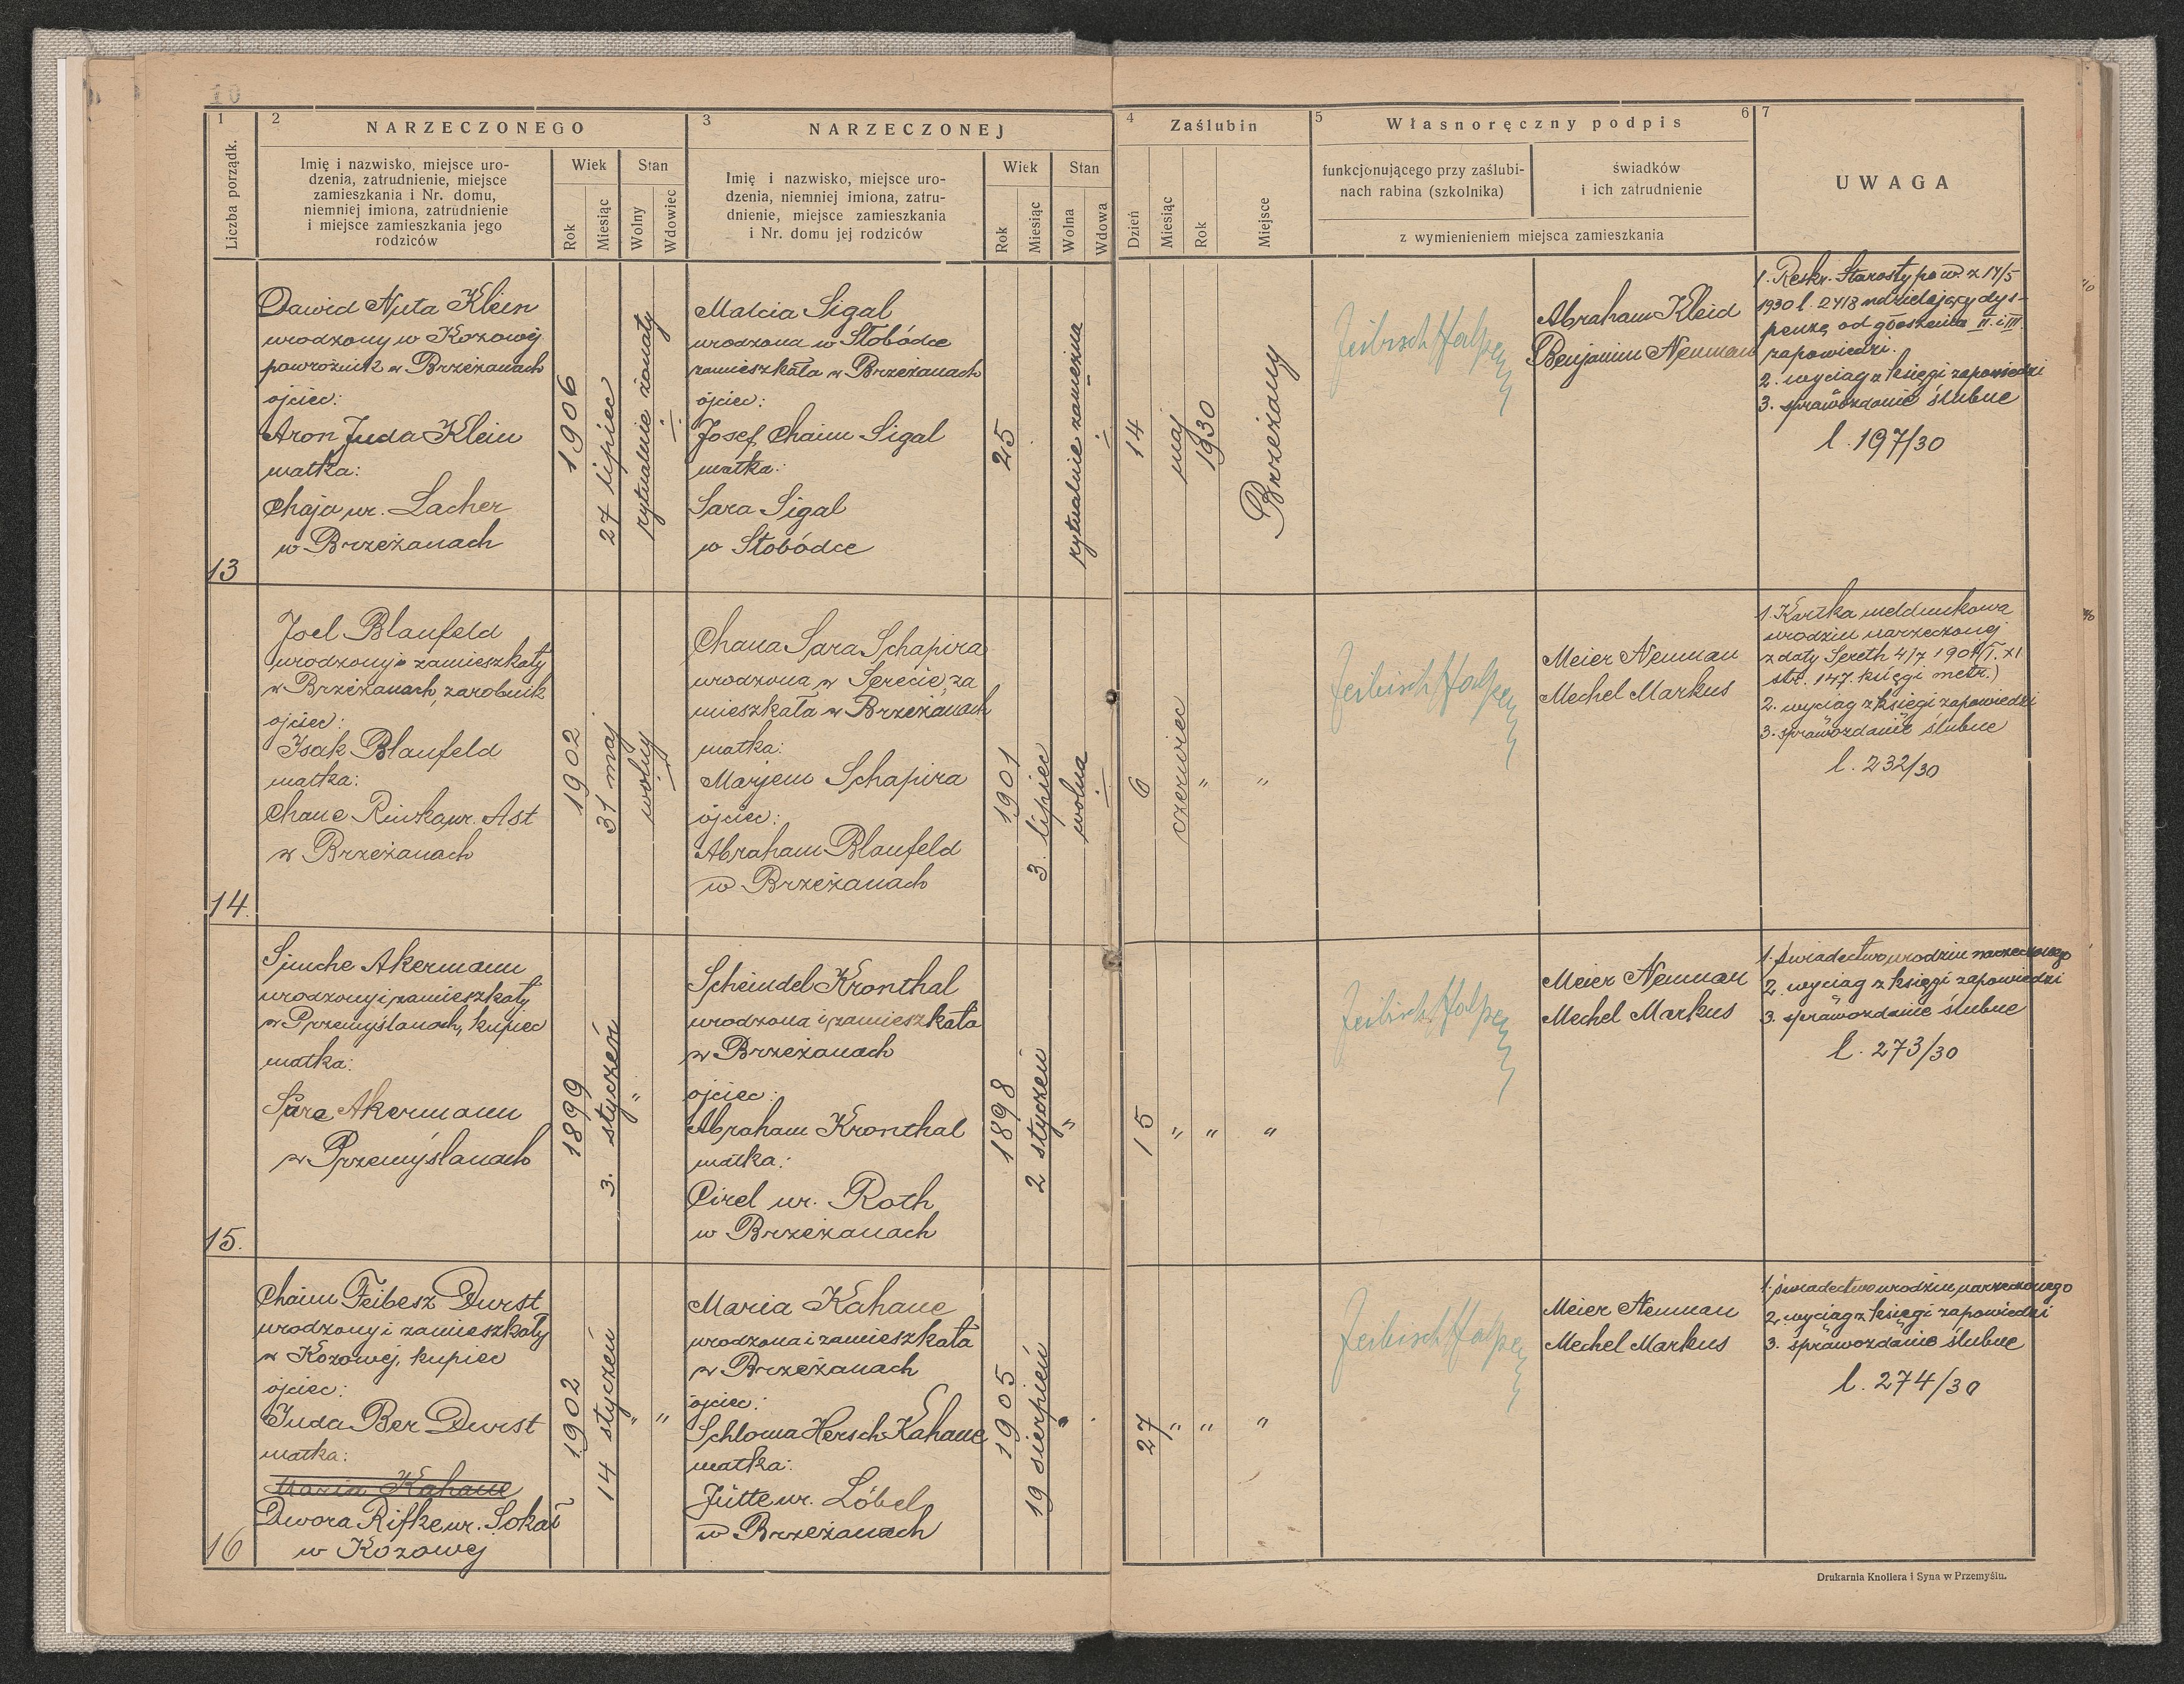 10
1
2
NARZECZONEGO
3
NARZECZONEJ
4
Zaślubin
5
Własnoręczny podpis
6
7
Liczba porządk.
Imię i nazwisko, miejsce uro-
dzenia, zatrudnienie, miejsce
zamieszkania i Nr. domu,
niemniej imiona, zatrudnienie
i miejsce zamieszkania jego
rodziców
Wiek
Stan
Rok
Miesiąc
Wolny
Wdowiec
Imię i nazwisko, miejsce uro-
dzenia, niemniej imiona, zatru-
dnienie, miejsce zamieszkania
i Nr. domu jej rodziców
Wiek
Stan
Rok
Miesiąc
Wolna
Wdowa
Dzień
Miesiąc
Rok
Miejsce
funkcjonującego przy zaślubi-
nach rabina (szkolnika)
świadków
i ich zatrudnienie
z wymienieniem miejsca zamieszkania
UWAGA
13
Dawid Nuta Klein
urodzony w Kozowej
powroźnik w Brzeżanach
ojciec:
Aron Juda Klein
matka:
Chaja ur. Lacher
w Brzeżanach
1906
27 lipiec
rytualnie żonaty
Malcia Sigal
urodzona w Słobódce
zamieszkała w Brzeżanach
ojciec:
Josef Chaim Sigal
matka:
Sara Sigal
w Słobódce
25
rytualnie zamężna
14
maj
1930
Brzeżany
Feibisch Halpern
Abraham Kleid
Benjamin Neuman
1. Reskr. Starosty pow. z 14/5
1930 l. 2418 udzielający dys-
penzę od głoszenia II. i III.
zapowiedzi.
2. wyciąg z księgi zapowiedzi
3. sprawozdanie ślubne
l. 197/30
14.
Joel Blaufeld
urodzony i zamieszkały
w Brzeżanach, zarobnik
ojciec:
Isak Blaufeld
matka:
Chane Riwka ur. Ast
w Brzeżanach
1902
31 maj
wolny
Chana Sara Schapira
urodzona w Serecie, za
mieszkała w Brzeżanach
matka:
Marjem Schapira
ojciec:
Abraham Blaufeld
w Brzeżanach
1901
3. lipiec
wolna
6
czerwiec
"
"
Feibisch Halpern
Meier Neuman
Mechel Markus
1. Kartka meldunkowa
urodzin narzeczonej
z daty Sereth 4/7 1901 (T. XI
str. 147. księgi metr.)
2. wyciąg z księgi zapowiedzi
3. sprawozdanie ślubne
l. 232/30
15.
Simche Akermann
urodzony i zamieszkały
w Przemyślanach, kupiec
matka:
Sara Akermann
w Przemyślanach
1899
3. styczeń
"
Scheindel Kronthal
urodzona i zamieszkała
w Brzeżanach
ojciec:
Abraham Kronthal
matka:
Cirel ur. Roth
w Brzeżanach
1898
2 styczeń
"
15
"
"
"
Feibisch Halpern
Meier Neuman
Mechel Markus
1. świadectwo urodzin narzeczonego
2. wyciąg z księgi zapowiedzi
3. sprawozdanie ślubne
l. 273/30
16
Chaim Feibesz Durst
urodzony i zamieszkały
w Kozowej, kupiec
ojciec:
Juda Ber Durst
matka:
Maria Kahane
Dwora Rifke ur. Sokal
w Kozowej
1902
14 styczeń
"
"
Maria Kahane
urodzona i zamieszkała
w Brzeżanach
ojciec:
Schloma Hersch Kahane
matka:
Jütte ur. Löbel
w Brzeżanach
1905
19 sierpień
"
27
"
"
"
Feibisch Halpern
Meier Neuman
Mechel Markus
1. świadectwo urodzin narzeczonego
2. wyciąg z księgi zapowiedzi
3. sprawozdanie ślubne
l. 274/30
Drukarnia Knollera i Syna w Przemyślu.